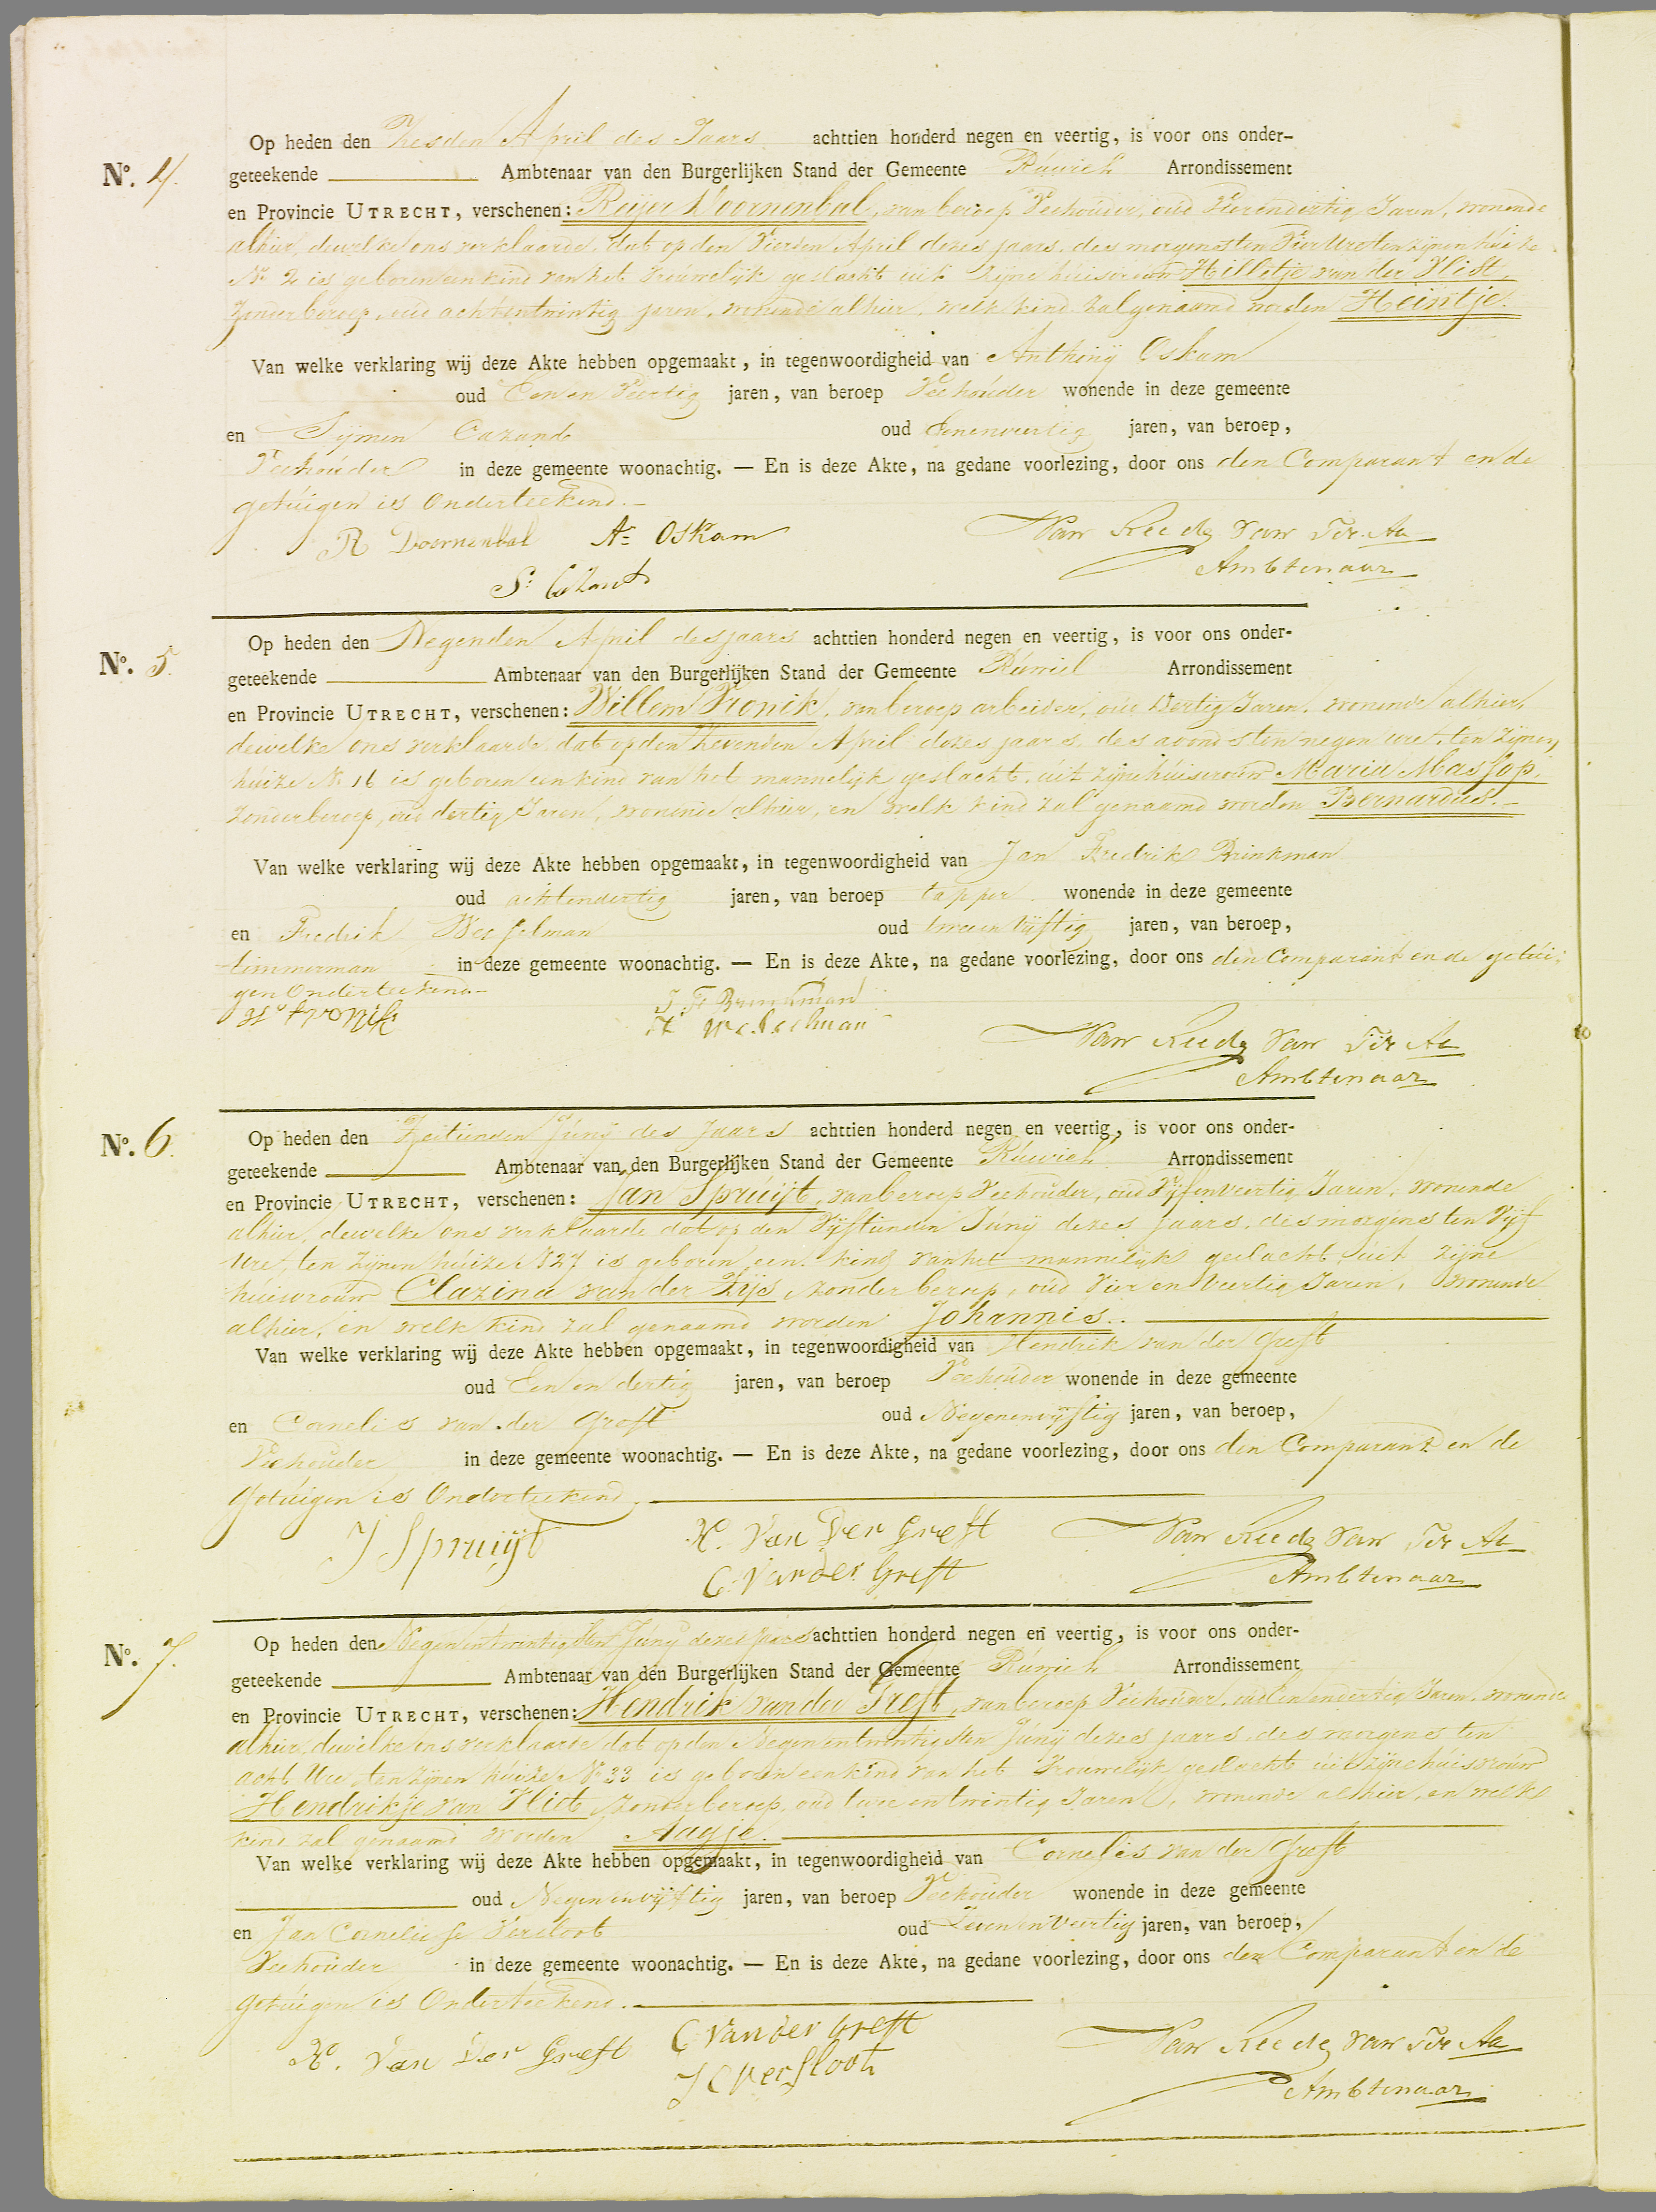 Op heden den Zesden April des Jaars achttien honderd negen en veertig, is voor ons onder-
No. 4. geteekende Ambtenaar van den Burgerlijken Stand der Gemeente Ruwiel Arrondissement
en Provincie UTRECHT, verschenen: Reijer Doornenbal, van beroep Veehouder, oud Vierendertig Jaren, wonende
alhier, dewelke ons verklaarde, dat op den Vierden April dezes jaars, des morgens ten Vier Ure ten zijnen huize
No 2 is geboren een kind van het vrouwelijk geslacht uit zijne huisvrouw Hilletje van der Vlist,
Zonder beroep, oud achtentwintig jaren, wonende alhier, welk kind zal genaamd worden Heintje.
Van welke verklaring wij deze Akte hebben opgemaakt, in tegenwoordigheid van Anthonij Oskam
oud Een en Veertig jaren, van beroep Veehouder wonende in deze gemeente
en Sijmen Cazand oud Eenenveertig jaren, van beroep,
Veehouder in deze gemeente woonachtig. — En is deze Akte, na gedane voorlezing, door ons den Comparant en de
getuigen is Onderteekend.—
R Doornenbal As Oskam Van Reede Van Ter Aa
S: Ambtenaar
Op heden den Negenden April des jaars achttien honderd negen en veertig, is voor ons onder-
No. 5. geteekende Ambtenaar van den Burgerlijken Stand der Gemeente Ruwiel Arrondissement
en Provincie UTRECHT, verschenen: Willem Vronik, van beroep arbeider, oud Dertig Jaren, wonende alhier,
dewelke ons verklaarde, dat op den Zevenden April dezes jaars, des avonds ten negen ure, ten zijnen
huize No 16 is geboren een kind van het mannelijk geslacht, uit zijne huisvrouw Maria Massop,
zonder beroep, oud dertig Jaren, wonende alhier, en welk kind zal genaamd worden Bernardus.—
Van welke verklaring wij deze Akte hebben opgemaakt, in tegenwoordigheid van Jan Fredrik Brinkman
oud achtendertig jaren, van beroep tapper wonende in deze gemeente
en Fredrik Wesselman oud tweenvijftig jaren, van beroep,
timmerman in deze gemeente woonachtig. — En is deze Akte, na gedane voorlezing, door ons den Comparant en de getui:
gen Onderteekend.—
W vronik J. F. Brinkman
Wesselman Van Reede Van Ter Aa
Ambtenaar
Op heden den Zestienden Junij des Jaars achttien honderd negen en veertig, is voor ons onder-
No. 6. geteekende Ambtenaar van den Burgerlijken Stand der Gemeente Ruwiel Arrondissement
en Provincie UTRECHT, verschenen: Jan Spruijt, van beroep Veehouder, oud Vijfenveertig Jaren, wonende
alhier, dewelke ons verklaarde dat op den Vijftienden Junij dezes jaars, des morgens ten Vijf
Ure, ten zijnen huize No 27 is geboren een kind van het mannelijk geslacht, uit zijne
huisvrouw Clazina van der Zijs, zonder beroep, oud Vier en Veertig Jaren, wonende
alhier, en welk kind zal genaamd worden Johannis.
Van welke verklaring wij deze Akte hebben opgemaakt, in tegenwoordigheid van Hendrik van der Greft
oud Een en dertig jaren, van beroep Veehouder wonende in deze gemeente
en Cornelis van der Greft oud Negenenvijftig jaren, van beroep,
Veehouder in deze gemeente woonachtig. — En is deze Akte, na gedane voorlezing, door ons den Comparant en de
Getuigen is Onderteekend.
J Spruijt H. Van Der Greft Van Reede Van Ter Aa
C. Van der Greft Ambtenaar
Op heden den Negenentwintigsten Junij dezes jaars achttien honderd negen en veertig, is voor ons onder-
No. 7. geteekende Ambtenaar van den Burgerlijken Stand der Gemeente Ruwiel Arrondissement
en Provincie UTRECHT, verschenen: Hendrik van der Greft, van beroep Veehouder, oud Eenendertig Jaren, wonende
alhier, dewelke ons verklaarde dat op den Negenentwintigsten Junij dezes jaars, des morgens ten
acht Ure ten zijnen huize No 33 is geboren een kind van het Vrouwelijk geslacht uit zijne huisvrouw
Hendrikje van Vliet, zonder beroep, oud twee en twintig Jaren, wonende alhier, en welke
kind zal genaamd worden Aagje.
Van welke verklaring wij deze Akte hebben opgemaakt, in tegenwoordigheid van Cornelis van der Greft
oud Negenenvijftig jaren, van beroep Veehouder wonende in deze gemeente
en Jan Cornelisse Versloot oud jaren, van beroep,
Veehouder in deze gemeente woonachtig. — En is deze Akte, na gedane voorlezing, door ons den Comparant en de
Getuigen is Onderteekend.
H. Van Der Greft C Van der Greft Van Reede Van Ter Aa
J C versloot Ambtenaar